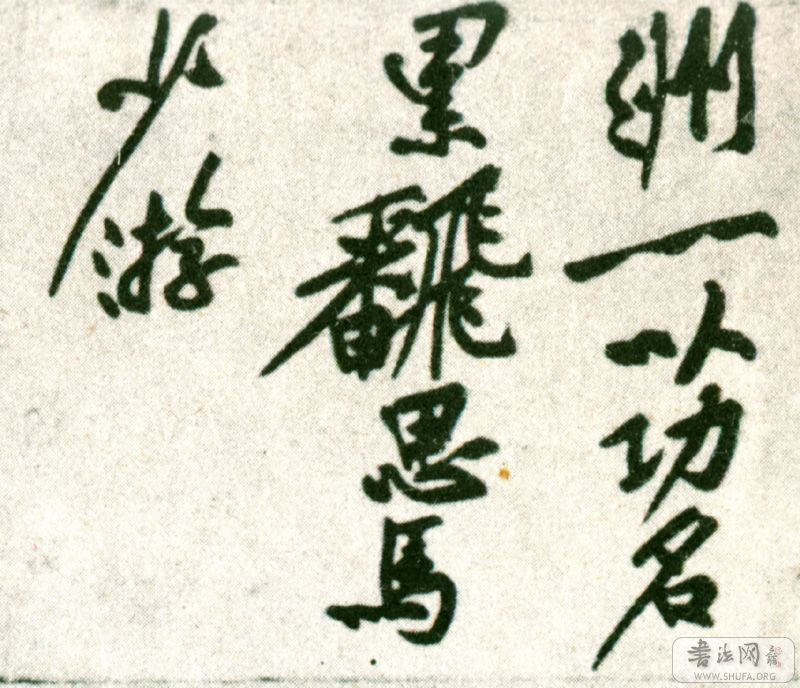 洲一以功名
累飜思馬
少游
書法网
WWW.SHUFA.ORG